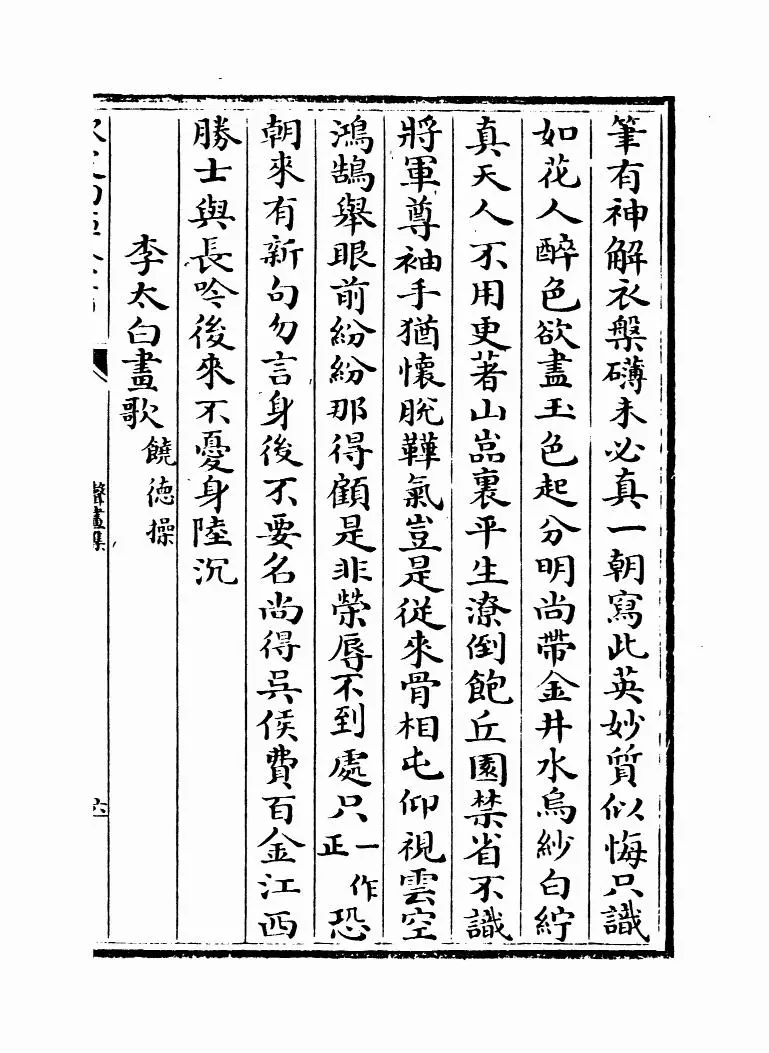 筆有神解衣槃礴未必真一朝寫此英妙質似悔只識
如花人醉色欲盡玉色起分明尚帶金井水烏紗白紵
真天人不用更著山嵓裏平生潦倒飽丘園禁省不識
將軍尊袖手猶懷脫鞾氣豈是從來骨相屯仰視雲空
鴻鵠舉眼前紛紛那得顧是非榮辱不到處只一作正恐
朝來有新句勿言身後不要名尚得吳侯費百金江西
勝士與長吟後來不憂身陸沉
李太白畫歌 饒德操
聲畫集
六